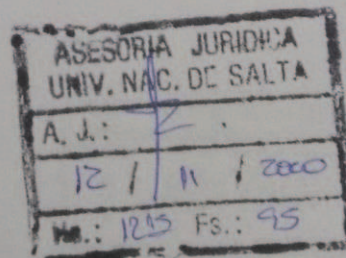 ASESORIA JURIDICA
UNIV. NAC. DE SALTA
A. J.:
12 / 11 / 2000
Hs.: 1215 Fs.: 95